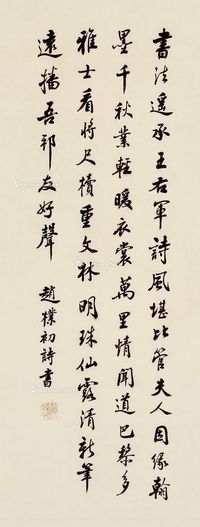 書法遙承王右軍詩風堪比管夫人因緣翰
墨千秋業輕暖衣裳萬里情聞道巴黎多
雅士看將尺牘重文林明珠仙露清新筆
遠播吾邦友好聲
趙樸初詩書